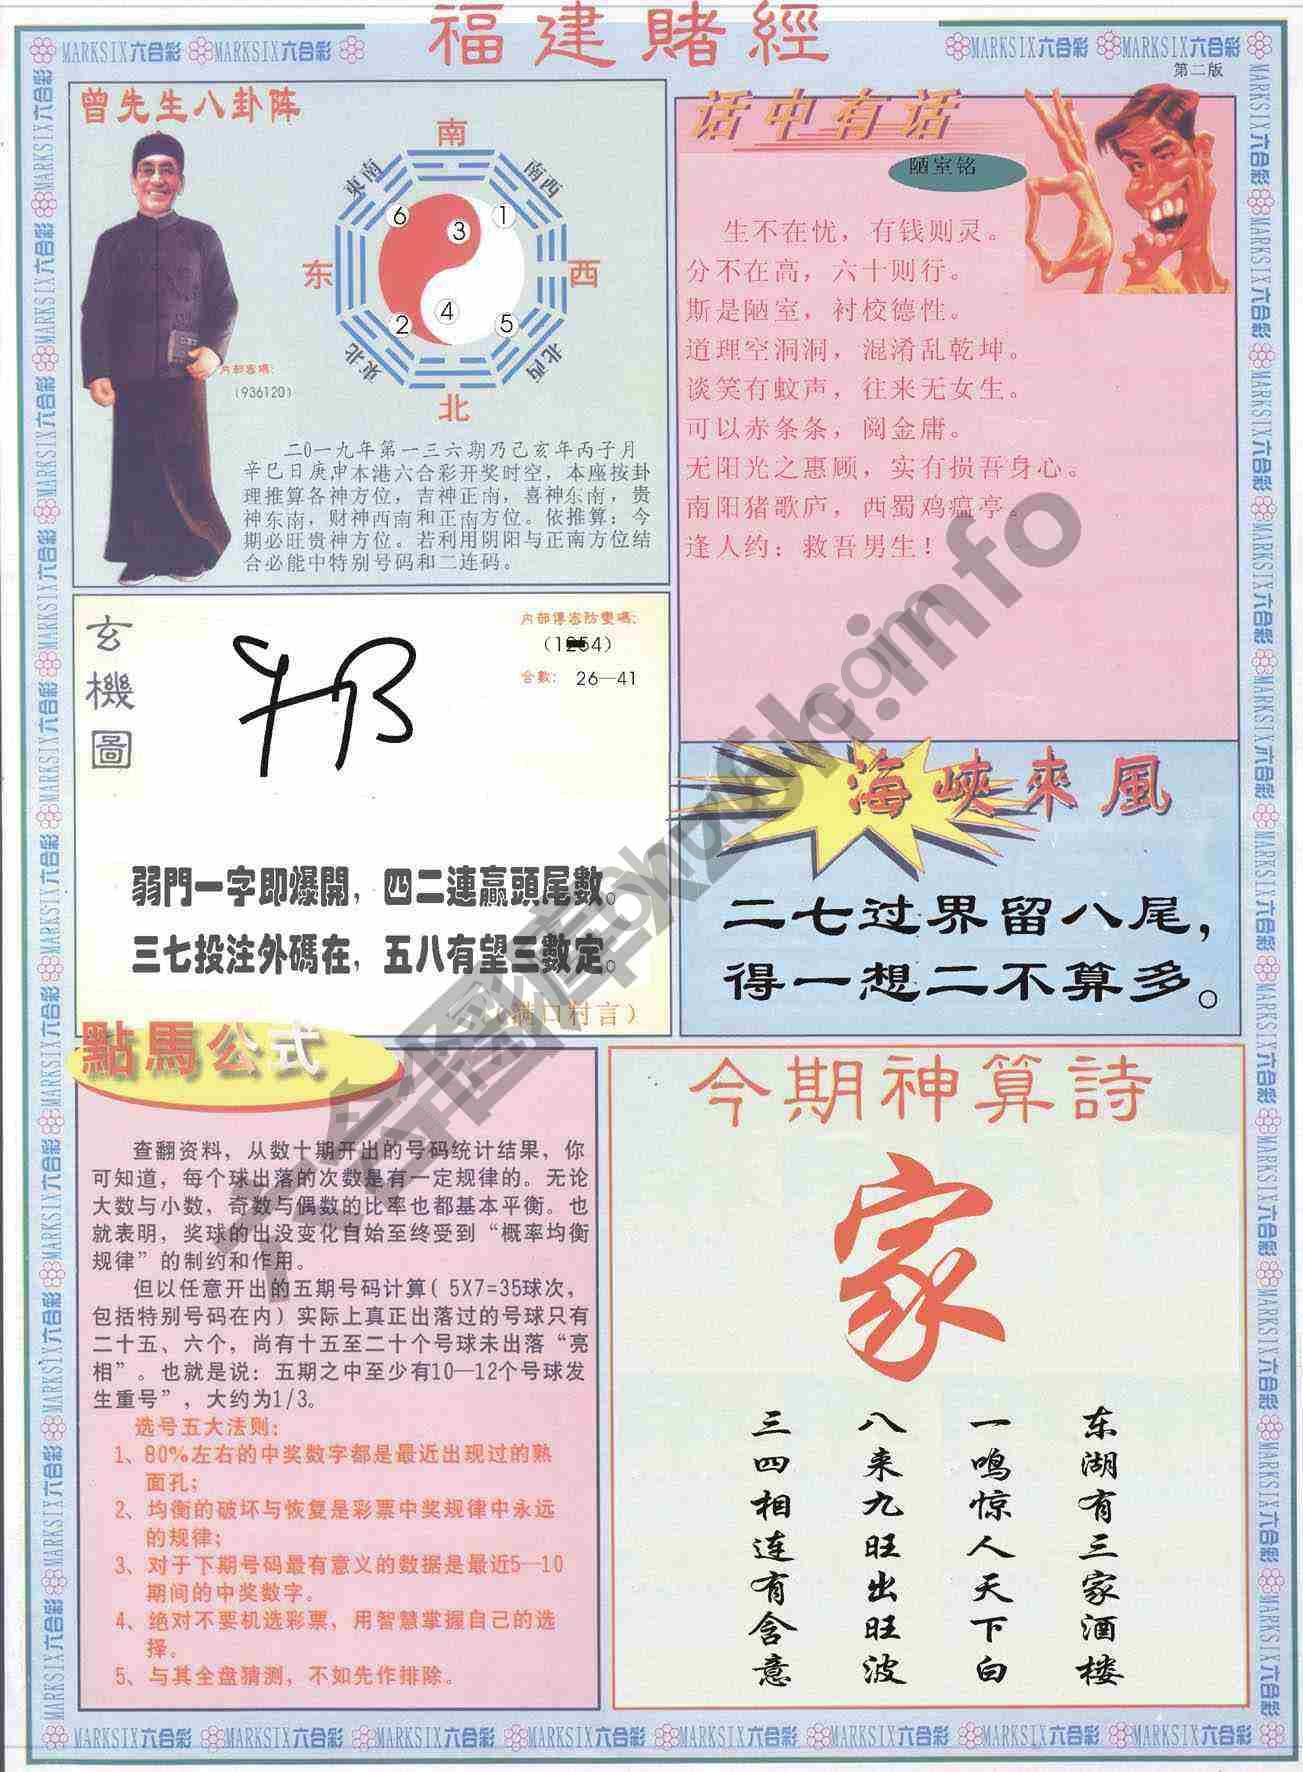 福建賭經
MARKSIX六合彩 MARKSIX六合彩
MARKSIX六合彩 MARKSIX六合彩
第二版
曾先生八卦阵
南
東南
南西
6
3
1
东
西
4
2
5
東北
北西
北
内部密碼:
(936120)
二0一九年第一三六期乃己亥年丙子月
辛巳日庚申本港六合彩开奖时空，本座按卦
理推算各神方位，吉神正南，喜神东南，贵
神东南，财神西南和正南方位。依推算：今
期必旺贵神方位。若利用阴阳与正南方位结
合必能中特别号码和二连码。
话中有话
陋室铭
生不在忧，有钱则灵。
分不在高，六十则行。
斯是陋室，衬校德性。
道理空洞洞，混淆乱乾坤。
谈笑有蚊声，往来无女生。
可以赤条条，阅金庸。
无阳光之惠顾，实有损吾身心。
南阳猪歌庐，西蜀鸡瘟亭。
逢人约：救吾男生！
玄機圖
内部傳密防變碼:
合數: 26—41
弱門一字即爆開，四二連贏頭尾數。
三七投注外碼在，五八有望三數定。
（满口村言）
海峽來風
二七过界留八尾，
得一想二不算多。
點馬公式
查翻资料，从数十期开出的号码统计结果，你
可知道，每个球出落的次数是有一定规律的。无论
大数与小数，奇数与偶数的比率也都基本平衡。也
就表明，奖球的出没变化自始至终受到“概率均衡
规律”的制约和作用。
但以任意开出的五期号码计算( 5X7=35球次，
包括特别号码在内）实际上真正出落过的号球只有
二十五、六个，尚有十五至二十个号球未出落“亮
相”。也就是说：五期之中至少有10—12个号球发
生重号”，大约为1/3。
选号五大法则：
1、80%左右的中奖数字都是最近出现过的熟
面孔；
2、均衡的破坏与恢复是彩票中奖规律中永远
的规律；
3、对于下期号码最有意义的数据是最近5—10
期间的中奖数字。
4、绝对不要机选彩票，用智慧掌握自己的选
择。
5、与其全盘猜测，不如先作排除。
今期神算詩
家
东湖有三家酒楼
一鸣惊人天下白
八来九旺出旺波
三四相连有含意
MARKSIX六合彩 MARKSIX六合彩 MARKSIX六合彩 MARKSIX六合彩 MARKSIX六合彩 MARKSIX六合彩 MARKSIX六合彩 MARKSIX六合彩